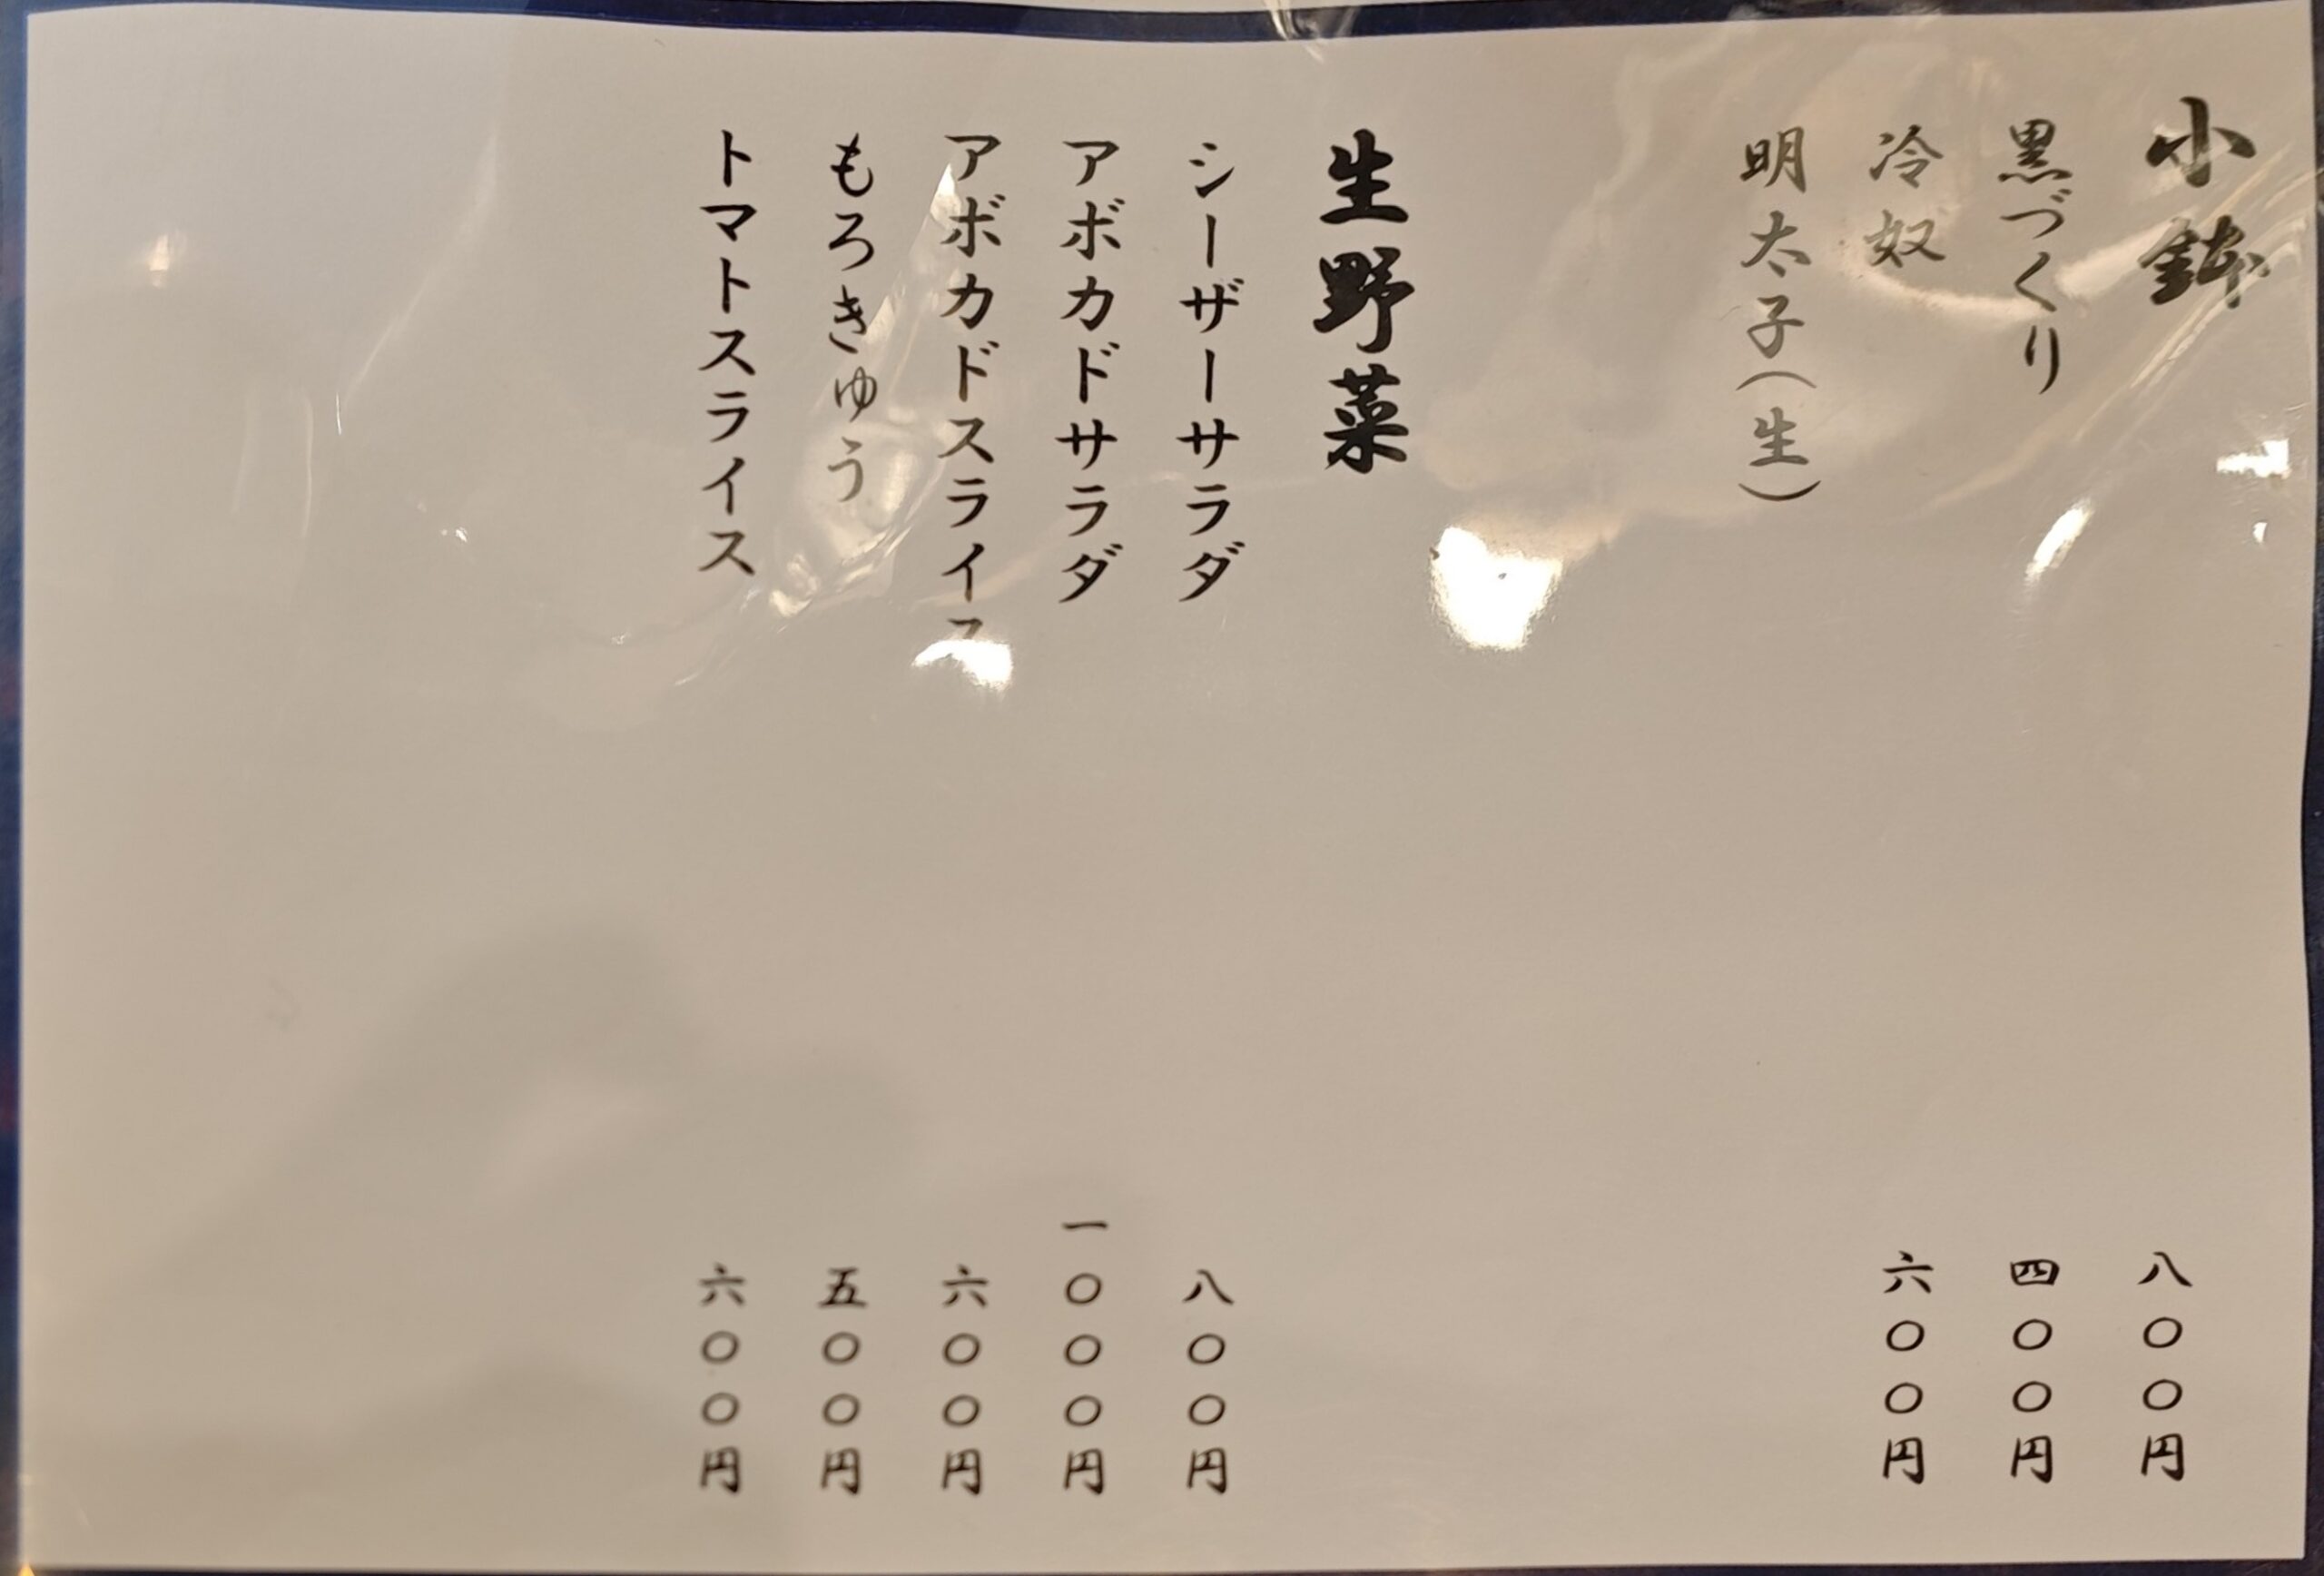 小鉢
黒づくり
八〇〇円
冷奴
四〇〇円
明太子(生)
六〇〇円
生野菜
シーザーサラダ
八〇〇円
アボカドサラダ
一〇〇〇円
アボカドスライス
六〇〇円
もろきゅう
五〇〇円
トマトスライス
六〇〇円